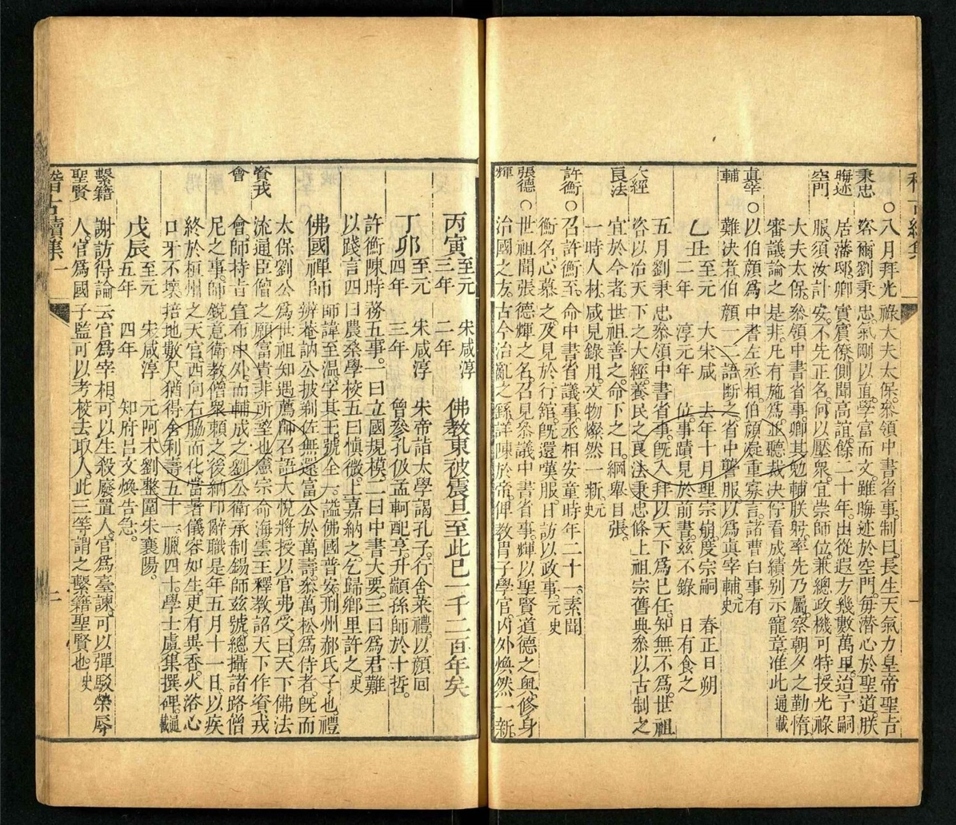 秉忠
晦迹
空門
〇八月拜光祿大夫太保叅領中書省事制曰長生天氣力皇帝聖旨
咨爾劉秉忠氣剛以直學富而文雖晦迹於空門每潛心於聖道朕
居藩邸卿實賓僚側聞高誼餘二十年出從遐方幾數萬里迨予嗣
服須汝計安不先正名何以壓衆宜崇師位兼總政機可特授光祿
大夫太保叅領中書省事卿其勉輔朕躬率先乃屬察朝夕之勤惰
審議論之是非凡有施爲並聽裁決佇看成績別示寵章准此通載
真宰
輔
〇以伯顏爲中書左丞相伯顏凝重寡言諸曹白事有
難決者伯顏一二語斷之省中聾服以爲真宰輔元史
乙丑 至元二年 大宋咸淳元年 去年十月理宗崩度宗嗣位事蹟見於前書茲不錄 春正日朔日有食之
大經
良法
五月劉秉忠叅領中書省事旣入拜以天下爲已任知無不爲世祖
咨以治天下之大經養民之良法秉忠條上祖宗舊典叅以古制之
宜於今者世祖善之命下之日綱舉目張
一時人材咸見錄用文物燦然一新元史
許衡
〇召許衡至命中書省議事丞相安童時年二十一素聞
衡名心慕之及見於行舘旣還嘆服日訪以政事元史
張德
輝
〇世祖聞張德輝之名召見叅議中書省事輝以聖賢道德之奧修身
治國之方古今治亂之繇詳陳於帝俾教胄子學官內外煥然一新
丙寅 至元三年 宋咸淳二年 佛教東被震旦至此已一千二百年矣
丁卯 至元四年 宋咸淳三年 朱帝詣太學謁孔子行舍菜禮以顏回曾參孔伋孟軻配享升顓孫師於十哲
許衡陳時務五事一曰立國規模二曰中書大要三曰爲君難
以踐言四曰農桑學校五曰愼微上嘉納之乞歸鄉里許之元史
佛國禪師 辨菴訥公披剃佐無還富公於萬壽叅萬松爲侍者旣而
太保劉公爲世祖知遇薦師召語大悅將授以官弗受曰天下佛法
資戒
會
流通臣僧之願富貴非所望也憲宗命海雲主釋教詔天下作資戒
會師持旨宣布中外而輔成之劉公衛承制錫師茲號總攝諸路僧
尼之事師銳意衛教僧衆賴之後納印辭職是年五月十一日以疾
終於桓州之天官西向右脇而化當暑儀容如生更有異香火浴心
口牙不壞掊地數尺猶得舍利壽五十一臘四十學士虞集撰碑通載
戊辰 至元五年 宋咸淳四年 元阿术劉整圍朱襄陽知府呂文煥告急
繫籍
聖賢
謝訪得論云官爲宰相可以生殺廢置人官爲臺諫可以彈駁榮辱
人官爲國子監可以考校去取人此三等謂之繫籍聖賢也史
稽古續集一